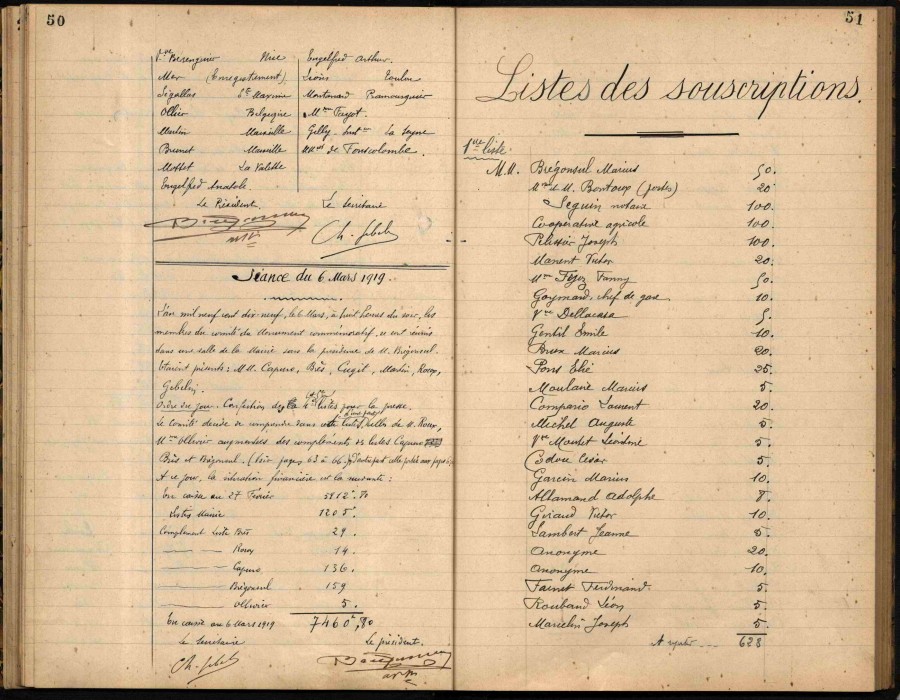 50
Vve Bérenguier Nice
Mer (Enregistrement)
Sigallas Ste Maxime
Ollier Belgique
Martin Marseille
Brunet Marseille
Mottet La Valette
Engelfred Anatole
Le Président
Engelfred Arthur.
Sioüs Toulon
Montanard Ramonguier
Mme
Gilly La Seyne
de Fonscolombe.
Le Secrétaire
Ch. Gebelin
Séance du 6 Mars 1919.
L'an mil neuf cent dix-neuf, le 6 Mars, à huit heures du soir, les
membres du comité du Monument commémoratif, se sont réunis
dans une salle de la Mairie sous la présidence de M. Brégonsul.
Étaient présents: MM. Capuro, Brès, Cugit, Martin, Roux,
Gebelin.
Ordre du jour. Confection de la 4e liste pour la presse.
Le Comité décide de comprendre dans cette liste, celles de M. Roux,
Mme Ollivier augmentées des compléments de listes Capuro
Brès et Brégonsul. (Voir pages 63 à 66.)
A ce jour, la situation financière est la suivante:
En caisse au 27 Février 5912f.80
Listes Mairie 1205.
Complément liste Brès 29.
Roux 14.
Capuro 136.
Brégonsul 159
Ollivier 5.
En caisse au 6 Mars 1919 7460f,80
Le Secrétaire Le président.
Ch. Gebelin
51
Listes des souscriptions.
1ère liste.
M.M. Brégonsul Marius 50.
Mme et M. Bontoux (postes) 20
Seguin notaire 100.
Coopérative agricole 100.
Pélissier Joseph 100.
Manent Victor 20.
Mme Fanny 50.
Gaymard, chef de gare 10.
Vve Dellacasa 5.
Gentil Emile 10.
Brux Marius 20.
Pons Elie 25.
Moulard Marius 5.
Compario Laurent 20.
Michel Auguste 5.
Vve Mautet Léontine 5.
Codou César 5.
Garcin Marius 10.
Allamand Adolphe 8.
Giraud Victor 10.
Lambert Jeanne 5.
Anonyme 20.
Anonyme 10.
Farnet Ferdinand 5.
Roubaud Léon 5.
Marcelin Joseph 5.
A reporter 628